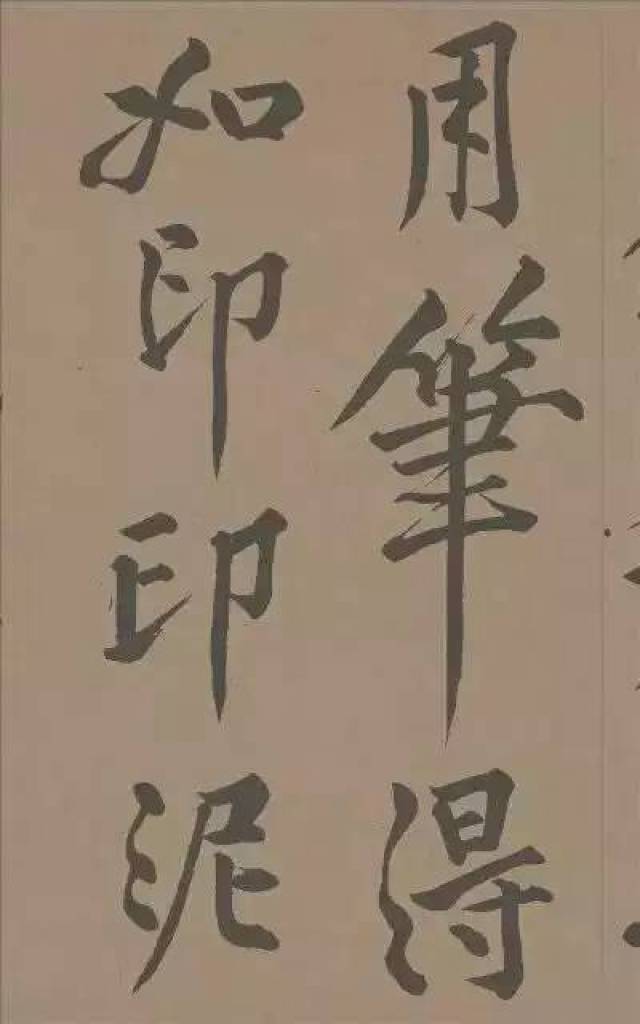 用筆得
如印印泥